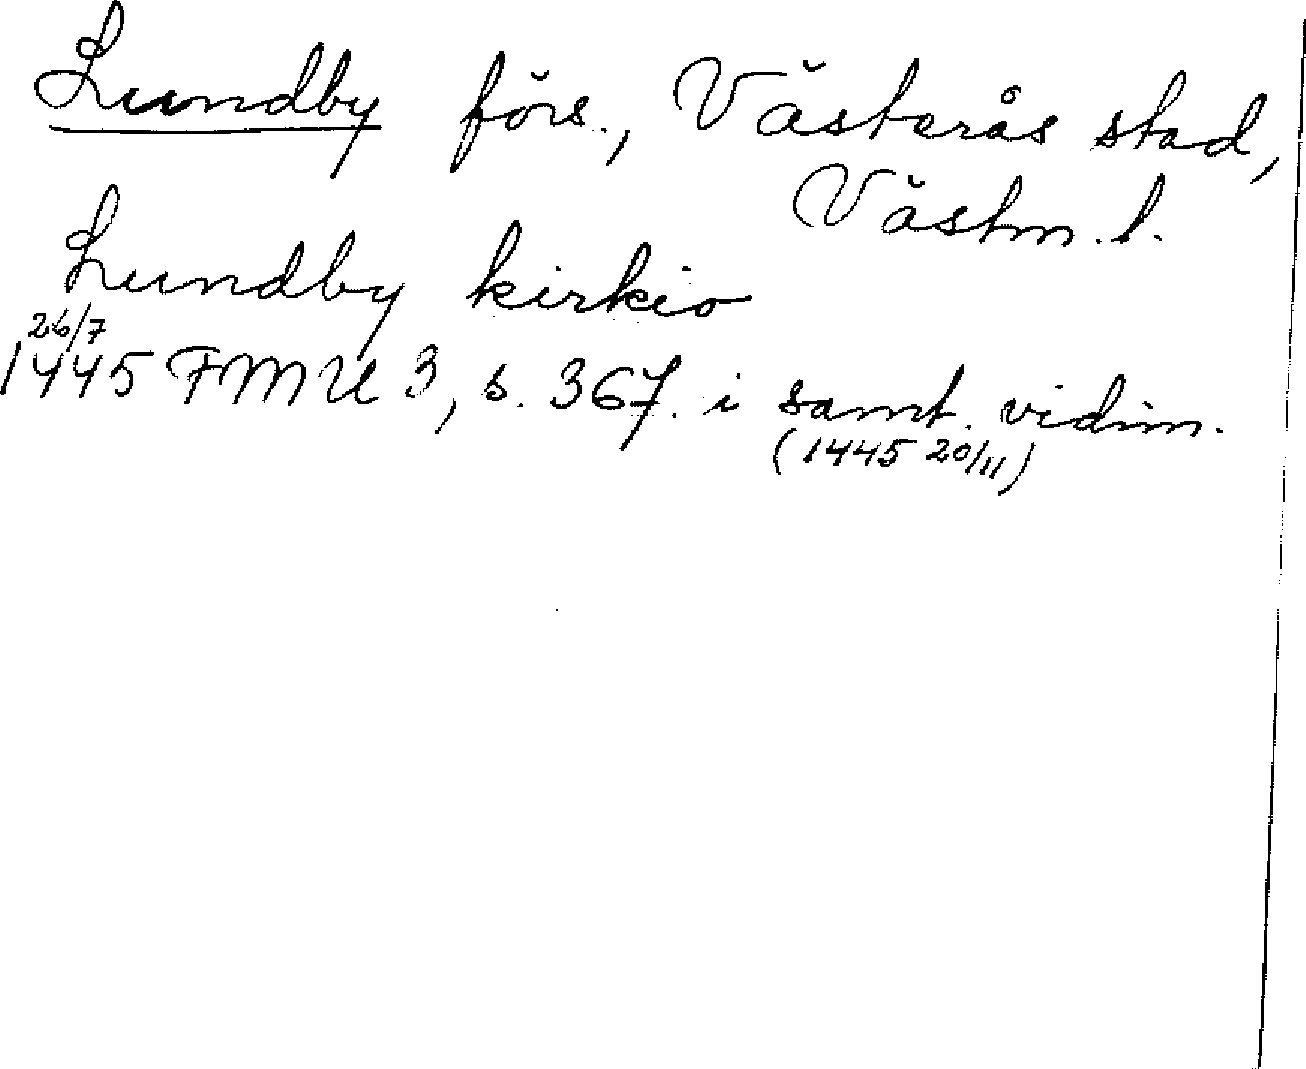 Lundby förs., Västerås stad,
Västm. l.
Lundby kirkio
26/7
1445 FMU 3, s. 367. i samt. vidim.
(1445 20/11)